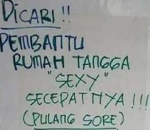 DICARI !!
PEMBANTU
RUMAH TANGGA
"SEXY"
SECEPATNYA !!!
(PULANG SORE)